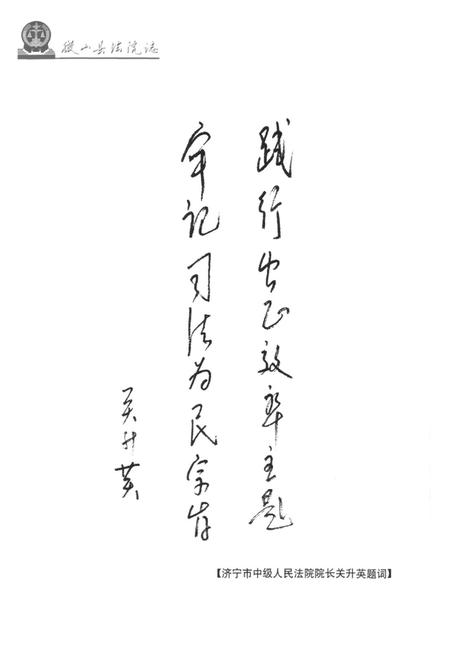 微山县法院誌
践行公正效率主题
牢记司法为民宗旨
关升英
【济宁市中级人民法院院长关升英题词】